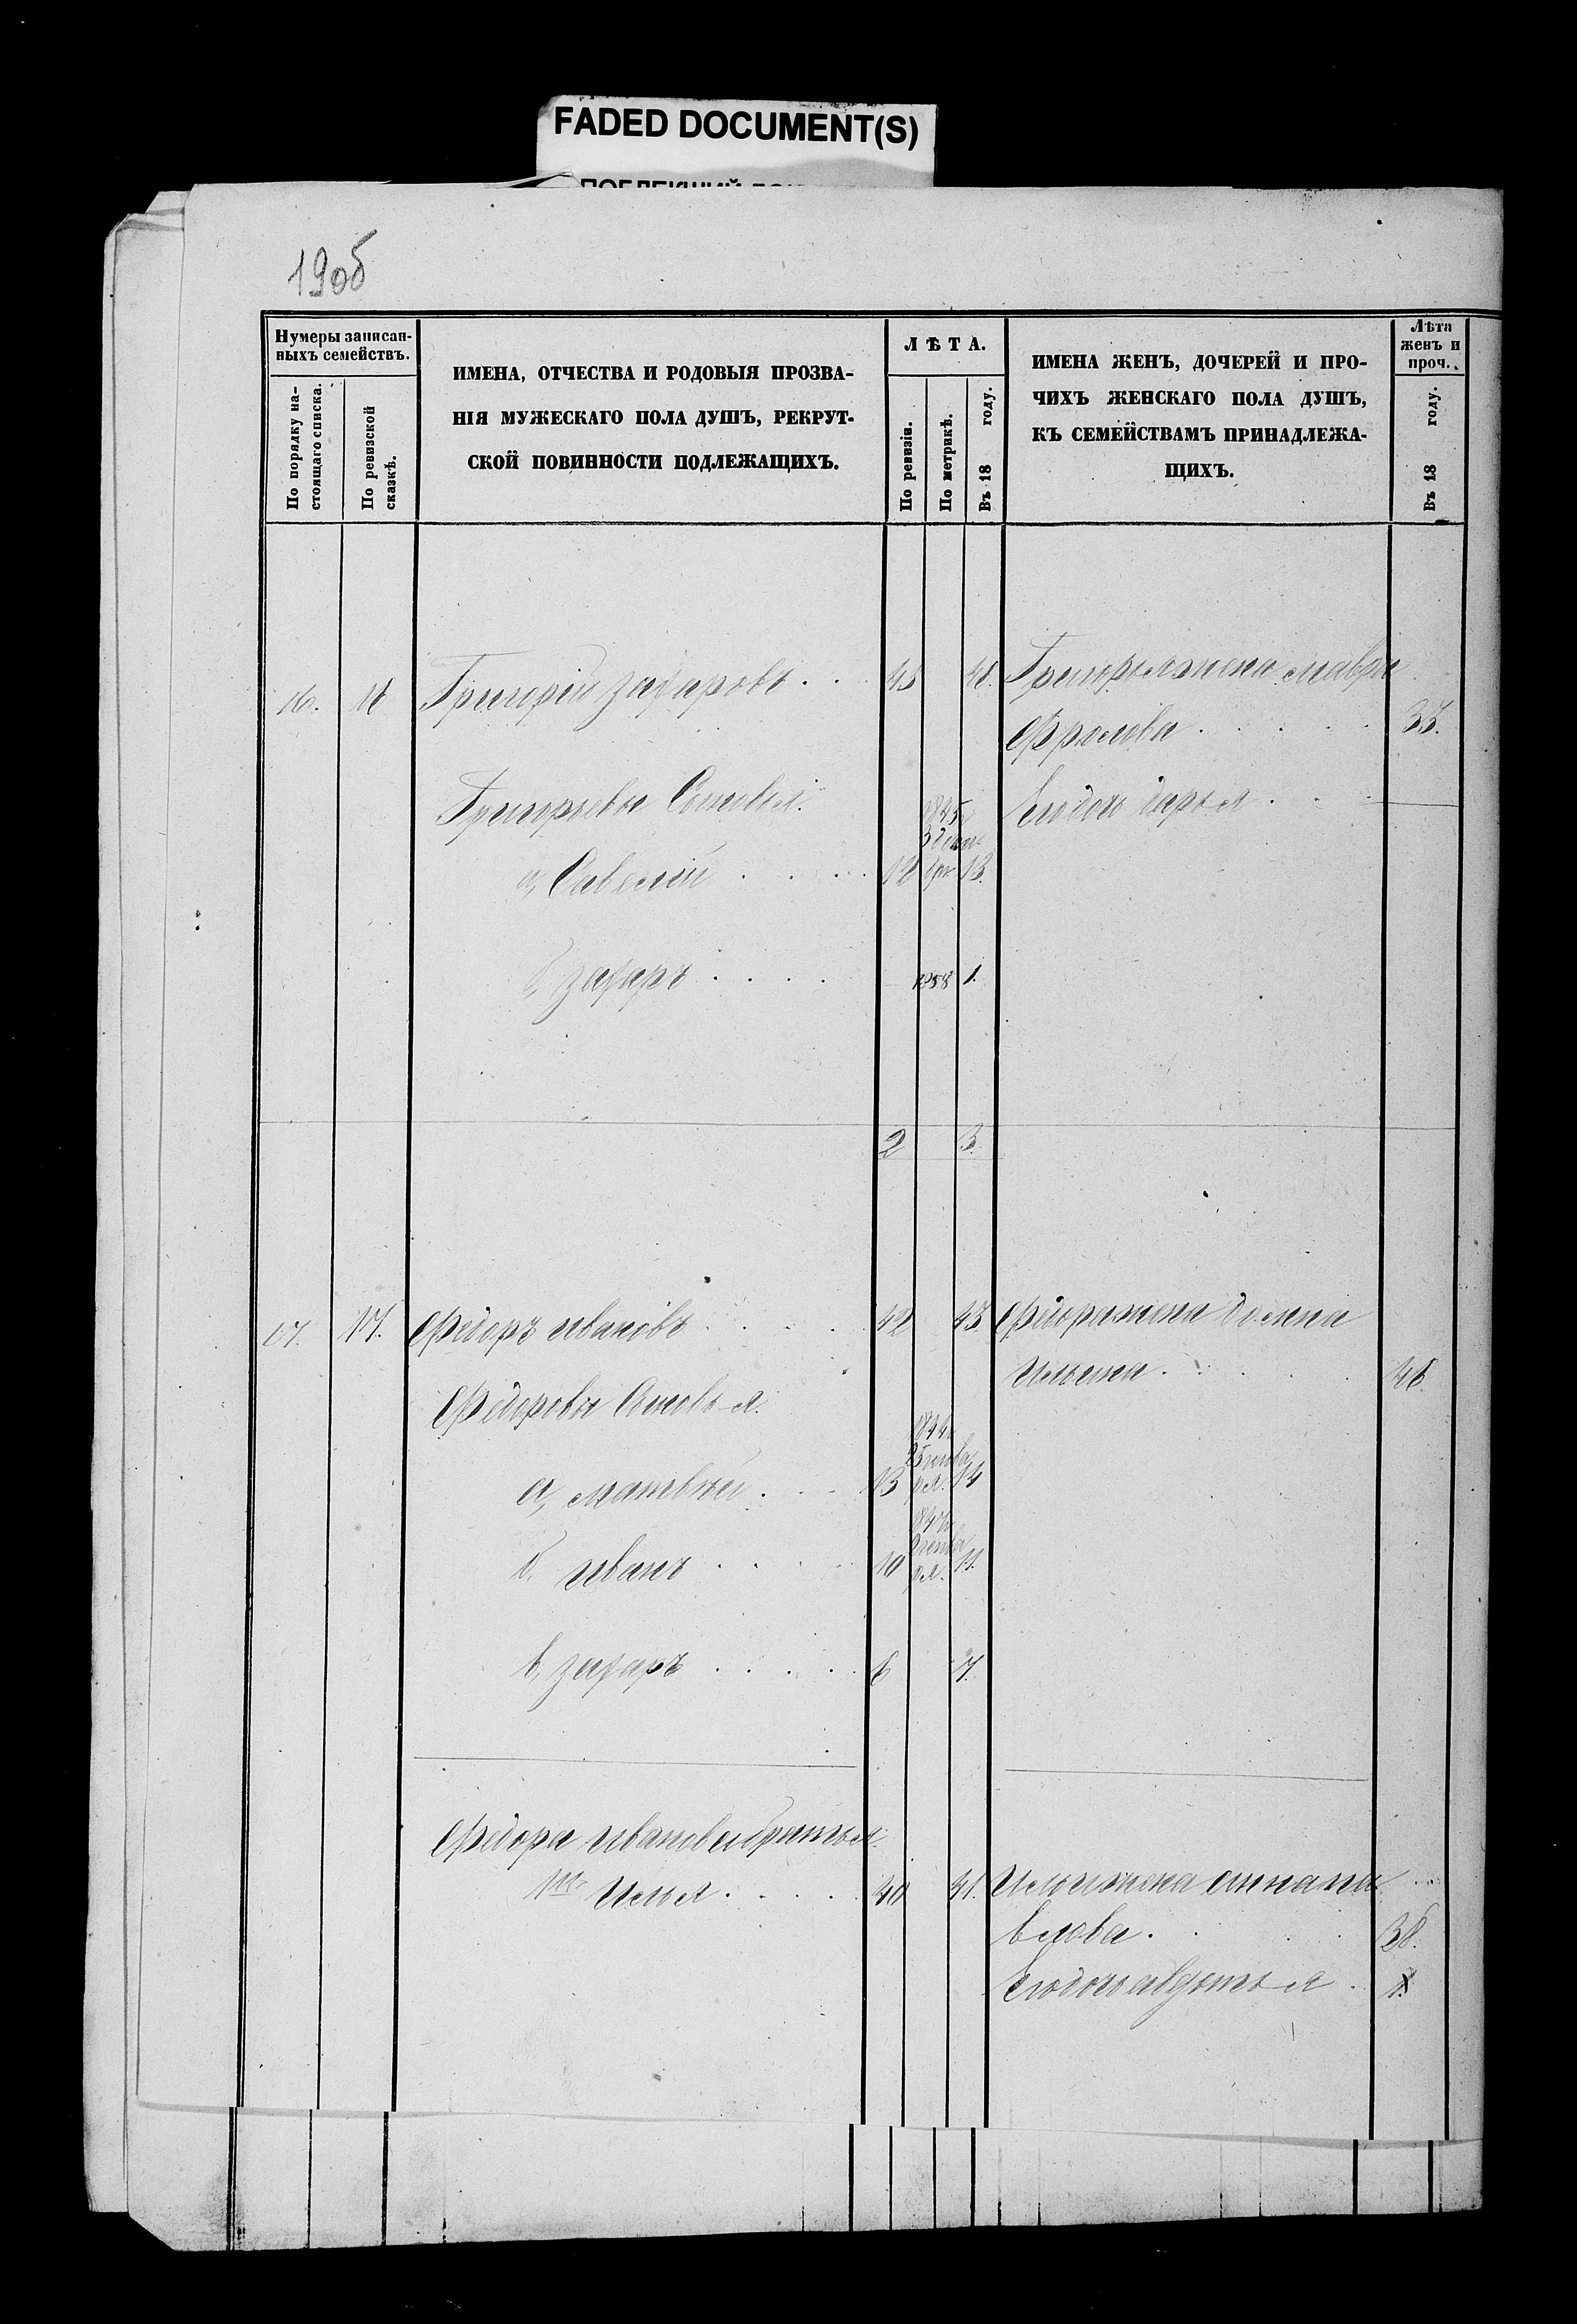 FADED DOCUMENT(S)
190б
Нумеры записан-
ныхъ семействъ.
По порядку на-
стоящаго списка.
По ревизской
сказкѣ.
ИМЕНА, ОТЧЕСТВА И РОДОВЫЯ ПРОЗВА-
НІЯ МУЖЕСКАГО ПОЛА ДУШЪ, РЕКРУТ-
СКОЙ ПОВИННОСТИ ПОДЛЕЖАЩИХЪ.
ЛѢТА.
По ревизіи.
По метрикѣ.
Въ 18 году.
ИМЕНА ЖЕНЪ, ДОЧЕРЕЙ И ПРО-
ЧИХЪ ЖЕНСКАГО ПОЛА ДУШЪ,
КЪ СЕМЕЙСТВАМЪ ПРИНАДЛЕЖА-
ЩИХЪ.
Лѣта
женъ и
проч.
Въ 18 году.
16. Григорій Захаровъ . . Григорья жена Мавра
Фролова . . . . .
Григорьевы Сыновья. Егодочь Дарья . .
1845
а, Савелій . . . . 12 13.
б, Захаръ . . . . 1858 1.
2 3.
17. 17. Фёдоръ Ивановъ . . . . 42 43. Фёдора жена Домна
Ильина . . . . .
Фёдоровы Сыновья.
1844
а, Матвѣй . . . 13 14
б, Иванъ . . . . 10 11.
в, Захаръ . . . . . 6 7.
Фёдора Иванова братья
Илья . . . . 40 41. Ильи жена Анна Па
влова . . . 38.
Егодочь Авдотья .